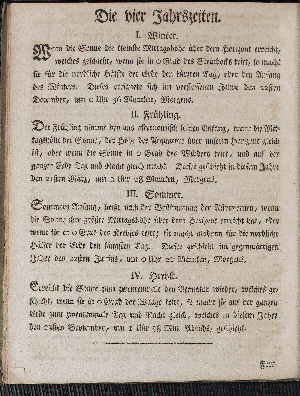 Die vier Jahrszeiten.
I. Winter.
Wenn die Sonne die kleinste Mittagshöhe über dem Horizont erreicht,
welches geschieht, wenn sie in 0 Grad des Steinbocks tritt, so macht
sie für die nördliche Hälfte der Erde den kürzten Tag, oder den Anfang
des Winters. Dieses ereignete sich im verflossenen Jahre den 21sten
December, um 2 Uhr 36 Minuten, Morgens.
II. Frühling.
Der Frühling nimmt bey uns astronomisch seinen Anfang, wenn die Mit-
tagshöhe der Sonne, der Höhe des Aequators über unserm Horizont gleich
ist, oder wenn die Sonne in 0 Grad des Widders tritt, und auf der
ganzen Erde Tag und Nacht gleich macht. Dieses geschieht in diesem Jahre
den 21sten März, um 2 Uhr Minuten, Morgens.
III. Sommer.
Sommers Anfang, nach der Bestimmung der Astronomen, wenn
die Sonne ihre größte Mittagshöhe über dem Horizont erreicht hat, oder
wenn sie in 0 Grad des Krebses tritt; sie macht alsdann für die nördliche
Hälfte der Erde den längsten Tag. Dieses geschieht im gegenwärtigen
Jahre den Junius, um 0 Uhr Minuten, Morgens.
IV. Herbst.
Erreicht die Sonne zum zweytenmale den Aequator wieder, welches ge-
schieht, wenn sie in 0 Grad der Waage tritt, so macht sie auf der ganzen
Erde zum zweytenmale Tag und Nacht gleich, welches in diesem Jahre
den September, um 1 Uhr 58 Min. Abends, geschieht.